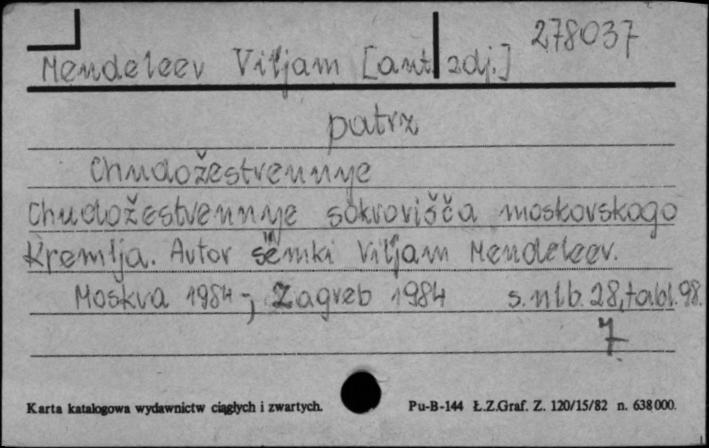 278037
Mendeleev Viljam [aut. zdj.]
patrz
Chudožestvennye
Chudožestvennye sokrovišča moskovskogo
Kremlja. Avtor šëmki Viljam Mendeleev.
Moskva 1984 -; Zagreb 1984 s. nlb. 28, tabl. 98.
7
Karta katalogowa wydawnictw ciągłych i zwartych. Pu-B-144 Ł.Z.Graf. Z. 120/15/82 n. 638000.